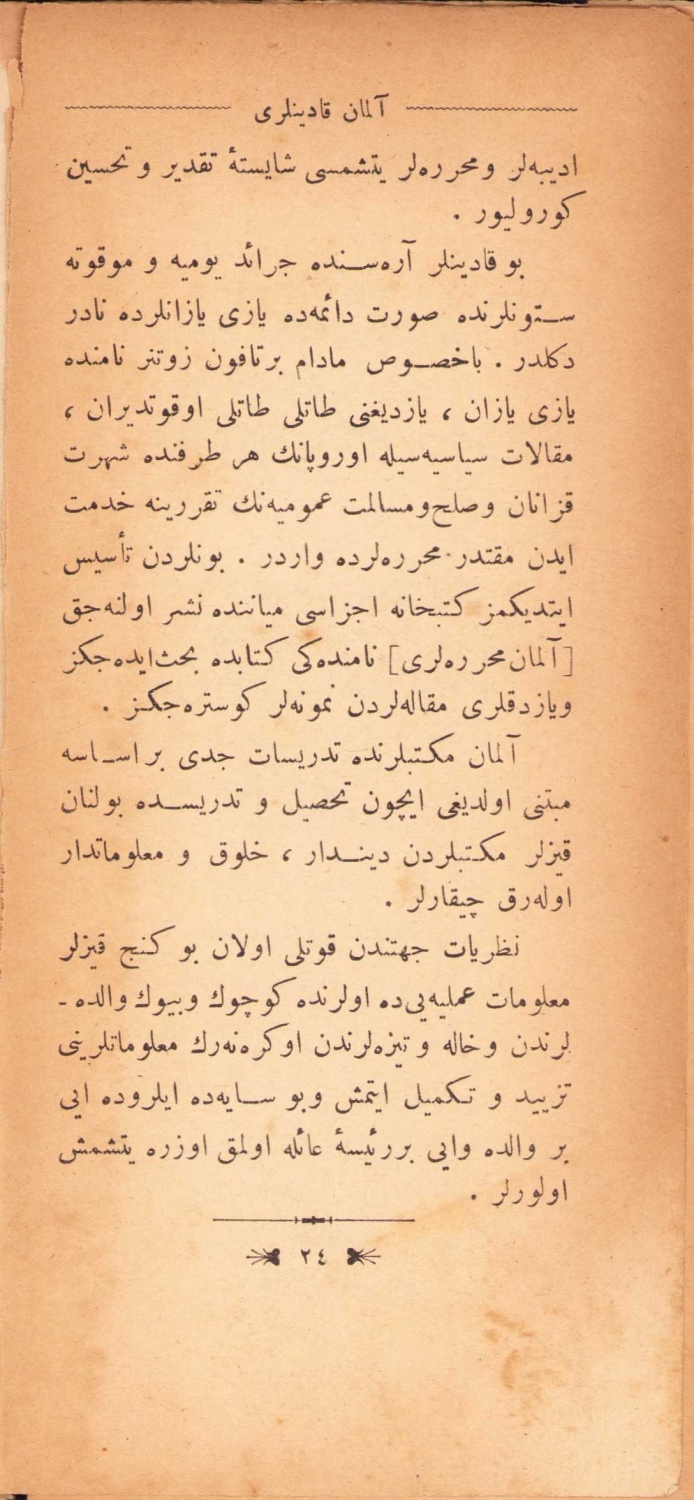 آلمان قادینلری
ادیبه‌لر ومحرره‌لر یتشمسی شایستهٔ تقدیر و تحسین
کورولیور .
بو قادینلر آره‌سنده جرائد یومیه و موقوته
ستونلرنده صورت دائمه‌ده یازی یازانلرده نادر
دکلدر . باخصوص مادام برتافون زوتنر نامنده
یازی یازان ، یازدیغنی طاتلی طاتلی اوقوتدیران ،
مقالات سیاسیه‌سیله اوروپانك هر طرفنده شهرت
قزانان وصلح‌ومسالمت عمومیه‌نك تقررینه خدمت
ایدن مقتدر محرره‌لرده واردر . بونلردن تأسیس
ایتدیکمز کتبخانه اجزاسی میاننده نشر اولنه‌جق
[آلمان محرره‌لری] نامنده‌کی کتابده بحث‌ایده‌جکز
ویازدقلری مقاله‌لردن نمونه‌لر کوستره‌جکز .
آلمان مکتبلرنده تدریسات جدی بر اساسه
مبتنی اولدیغی ایچون تحصیل و تدریسده بولنان
قیزلر مکتبلردن دیندار ، خلوق و معلوماتدار
اوله‌رق چیقارلر .
نظریات جهتندن قوتلی اولان بو کنج قیزلر
معلومات عملیه‌یی‌ده اولرنده کوچوك وبیوك والده ـ
لرندن وخاله و تیزه‌لرندن اوکره‌نه‌رك معلوماتلرینی
تزیید و تکمیل ایتمش وبو سایه‌ده ایلروده ایی
بر والده وایی بررئیسهٔ عائله اولمق اوزره یتشمش
اولورلر .
٢٤